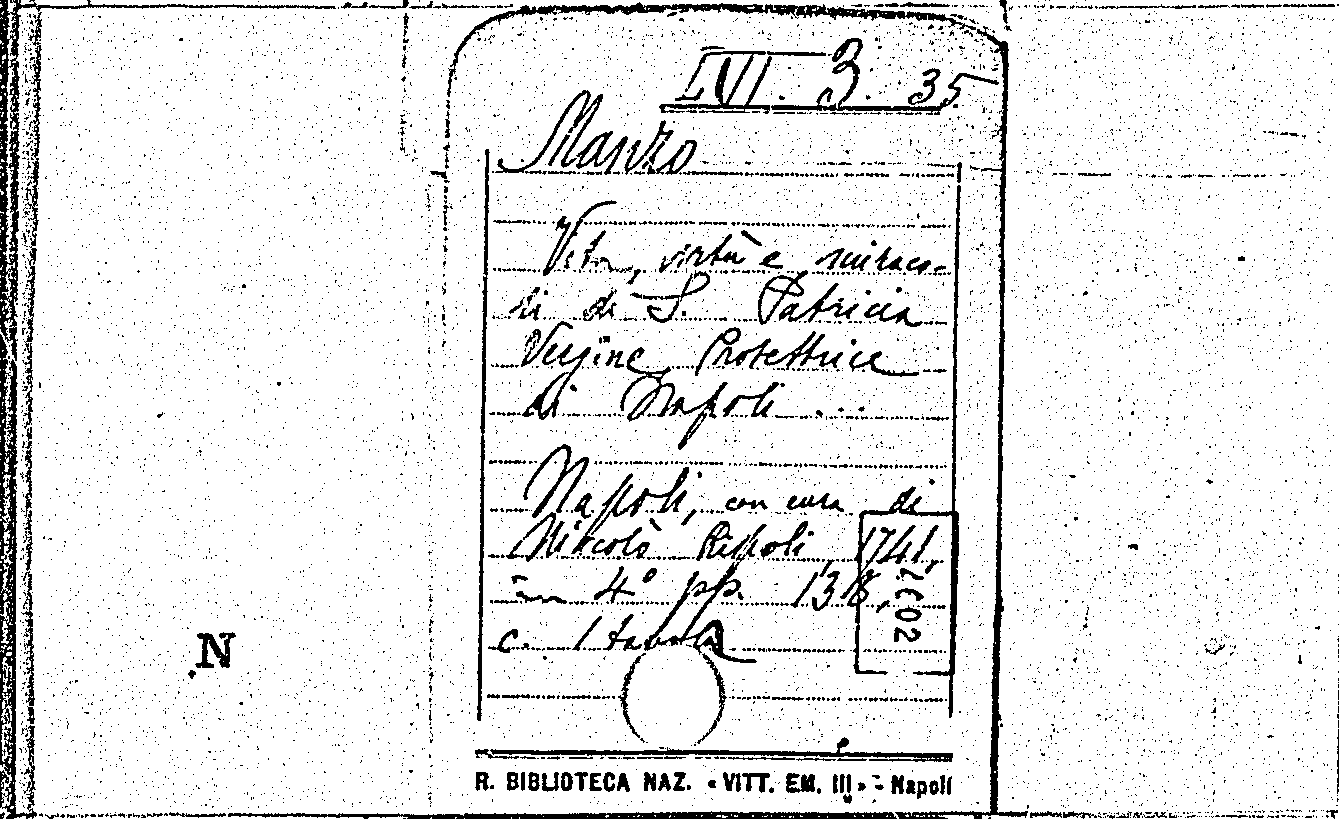 LVI. 3. 35
Manzo
Vita, virtù e miraco-
li di S. Patricia
Vergine, Protettrice
di Napoli ...
Napoli, con cura di
Niccolò Rispoli, 1741,
in 4° pp. 138,
c. 1 tavola
N
R. BIBLIOTECA NAZ. «VITT. EM. III» - Napoli